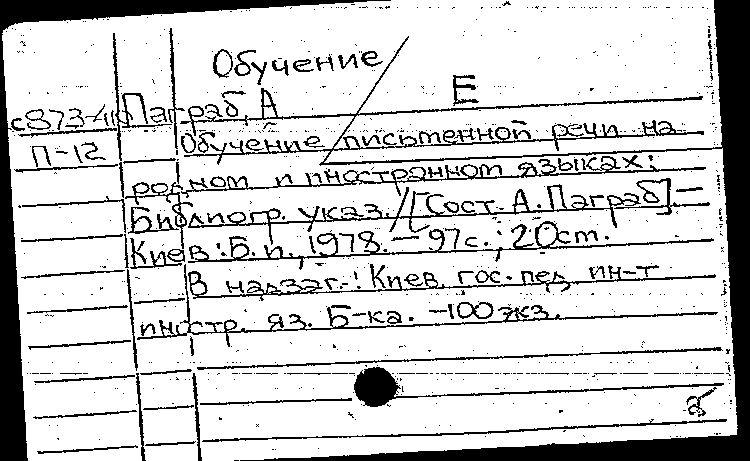 Обучение
Е
с873-411 Паграб, А
П-12 Обучение письменной речи на
родном и иностранном языках:
Библиогр. указ. / [Сост. А. Паграб]. –
Киев: Б. и., 1978. – 97с.; 20 ст.
В надзаг.: Киев. гос. пед. ин-т
иностр. яз. Б-ка. – 100 экз.